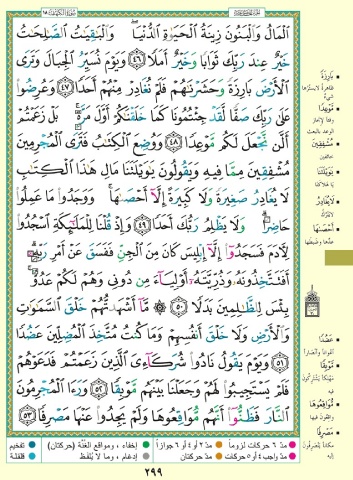 ٱلْمَالُ وَٱلْبَنُونَ زِينَةُ ٱلْحَيَوٰةِ ٱلدُّنْيَا ۖ وَٱلْبَٰقِيَٰتُ ٱلصَّٰلِحَٰتُ
خَيْرٌ عِندَ رَبِّكَ ثَوَابًا وَخَيْرٌ أَمَلًا ٤٦ وَيَوْمَ نُسَيِّرُ ٱلْجِبَالَ وَتَرَى
ٱلْأَرْضَ بَارِزَةً وَحَشَرْنَٰهُمْ فَلَمْ نُغَادِرْ مِنْهُمْ أَحَدًا ٤٧ وَعُرِضُوا۟
عَلَىٰ رَبِّكَ صَفًّا لَّقَدْ جِئْتُمُونَا كَمَا خَلَقْنَٰكُمْ أَوَّلَ مَرَّةٍۭ ۚ بَلْ زَعَمْتُمْ
أَلَّن نَّجْعَلَ لَكُم مَّوْعِدًا ٤٨ وَوُضِعَ ٱلْكِتَٰبُ فَتَرَى ٱلْمُجْرِمِينَ
مُشْفِقِينَ مِمَّا فِيهِ وَيَقُولُونَ يَٰوَيْلَتَنَا مَالِ هَٰذَا ٱلْكِتَٰبِ
لَا يُغَادِرُ صَغِيرَةً وَلَا كَبِيرَةً إِلَّآ أَحْصَىٰهَا ۚ وَوَجَدُوا۟ مَا عَمِلُوا۟
حَاضِرًا ۗ وَلَا يَظْلِمُ رَبُّكَ أَحَدًا ٤٩ وَإِذْ قُلْنَا لِلْمَلَٰٓئِكَةِ ٱسْجُدُوا۟
لِءَادَمَ فَسَجَدُوٓا۟ إِلَّآ إِبْلِيسَ كَانَ مِنَ ٱلْجِنِّ فَفَسَقَ عَنْ أَمْرِ رَبِّهِۦٓ ۗ
أَفَتَتَّخِذُونَهُۥ وَذُرِّيَّتَهُۥٓ أَوْلِيَآءَ مِن دُونِى وَهُمْ لَكُمْ عَدُوٌّۢ ۚ
بِئْسَ لِلظَّٰلِمِينَ بَدَلًا ٥٠ ۞ مَّآ أَشْهَدتُّهُمْ خَلْقَ ٱلسَّمَٰوَٰتِ
وَٱلْأَرْضِ وَلَا خَلْقَ أَنفُسِهِمْ وَمَا كُنتُ مُتَّخِذَ ٱلْمُضِلِّينَ عَضُدًا
٥١ وَيَوْمَ يَقُولُ نَادُوا۟ شُرَكَآءِىَ ٱلَّذِينَ زَعَمْتُمْ فَدَعَوْهُمْ
فَلَمْ يَسْتَجِيبُوا۟ لَهُمْ وَجَعَلْنَا بَيْنَهُم مَّوْبِقًا ٥٢ وَرَءَا ٱلْمُجْرِمُونَ
ٱلنَّارَ فَظَنُّوٓا۟ أَنَّهُم مُّوَاقِعُوهَا وَلَمْ يَجِدُوا۟ عَنْهَا مَصْرِفًا ٥٣
بَارِزَةً
مَوْعِدًا
مُشْفِقِينَ
يَٰوَيْلَتَنَا
لَا يُغَادِرُ
أَحْصَىٰهَا
عَضُدًا
مَّوْبِقًا
مُّوَاقِعُوهَا
مَصْرِفًا
مدّ ٦ حركات لزوماً مدّ ٢ أو ٤ أو ٦ جوازاً إخفاء، ومواقع الغُنَّة (حركتان) تفخيم
مدّ واجب ٤ أو ٥ حركات مدّ حركتان إدغام، وما لا يُلفظ قلقلة
٢٩٩